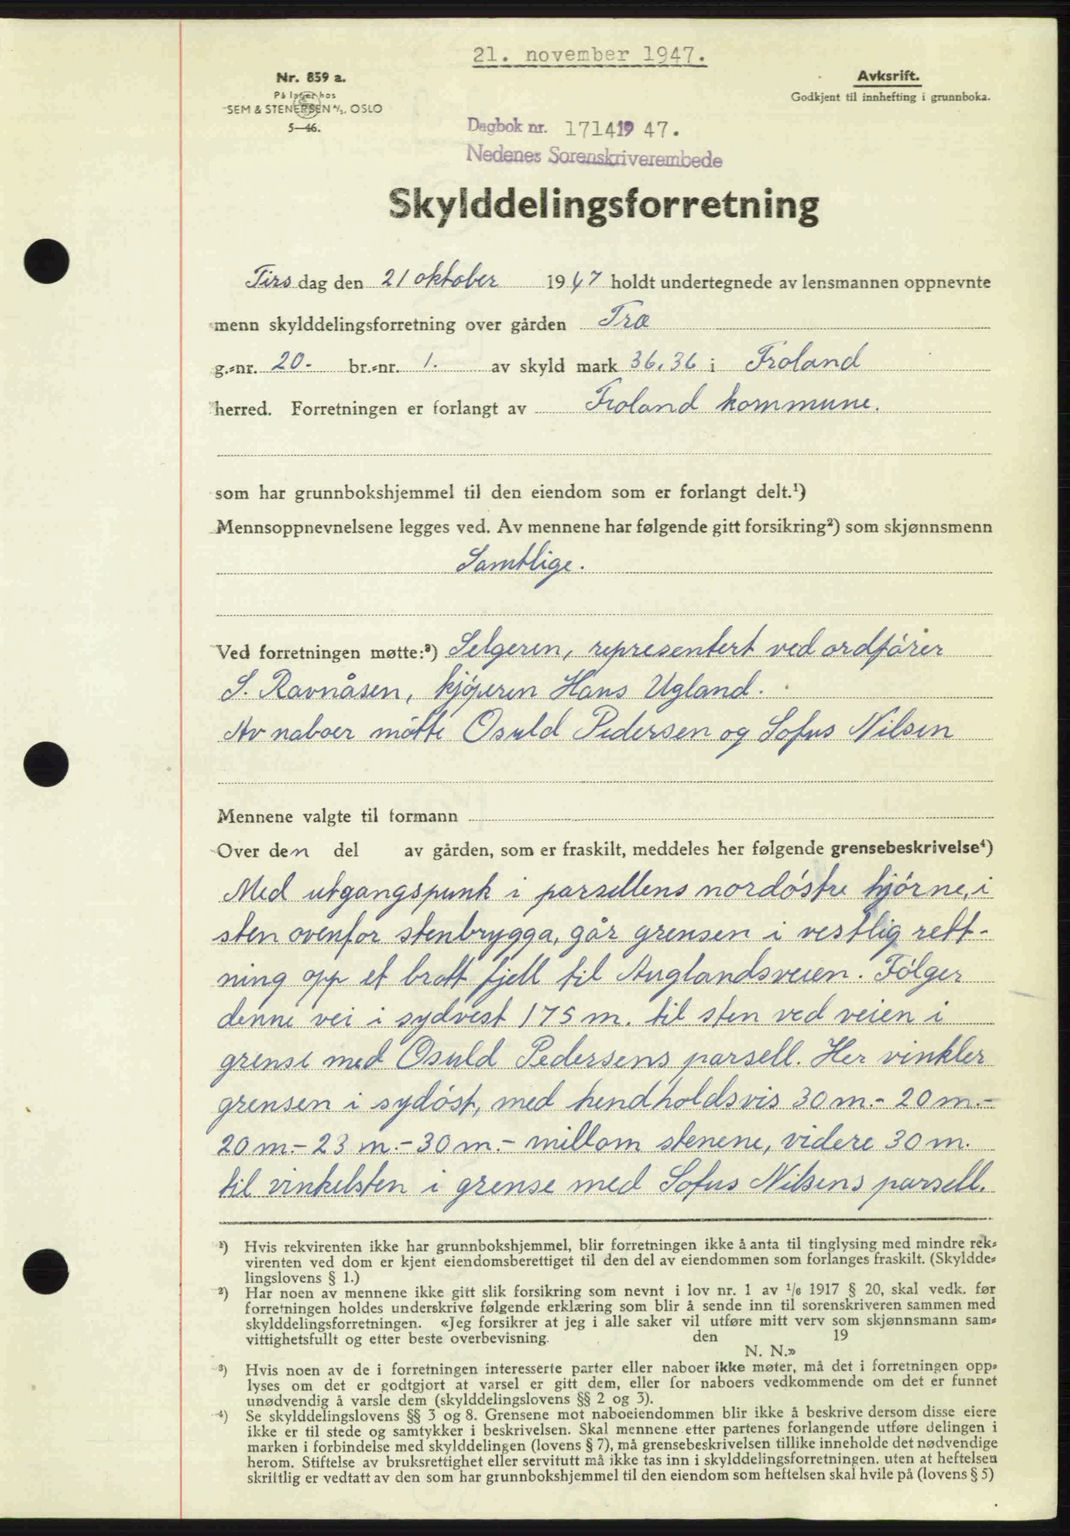 21. november 1947.
Nr. 859 a.
På lager hos
SEM & STENERSEN A/S, OSLO
5—46.
Avksrift.
Godkjent til innhefting i grunnboka.
Dagbok nr. 1714 19 47.
Nedenes Sorenskriverembede
Skylddelingsforretning
Tirs dag den 21 oktober 1947 holdt undertegnede av lensmannen oppnevnte
menn skylddelingsforretning over gården Træ
g.-nr. 20. br.-nr. 1. av skyld mark 36,36 i Froland
herred. Forretningen er forlangt av Froland kommune.
som har grunnbokshjemmel til den eiendom som er forlangt delt.¹)
Mennsoppnevnelsene legges ved. Av mennene har følgende gitt forsikring²) som skjønnsmenn
Samtlige.
Ved forretningen møtte:³) Selgeren, representert ved ordfører
S. Ravnåsen, kjøperen Hans Ugland.
Av naboer møtte Osuld Pedersen og Sofus Nilsen
Mennene valgte til formann
Over den del av gården, som er fraskilt, meddeles her følgende grensebeskrivelse⁴)
Med utgangspunk i parsellens nordøstre hjørne, i
sten ovenfor stenbrygga, går grensen i vestlig rett-
ning opp et bratt fjell til Auglandsveien. Følger
denne vei i sydvest 175 m. til sten ved veien i
grense med Osuld Pedersens parsell. Her vinkler
grensen i sydøst, med hendholdsvis 30 m.- 20 m.-
20 m.- 23 m.- 30 m.- millom stenene, videre 30 m.
til vinkelsten i grense med Sofus Nilsens parsell.
¹) Hvis rekvirenten ikke har grunnbokshjemmel, blir forretningen ikke å anta til tinglysing med mindre rek-
virenten ved dom er kjent eiendomsberettiget til den del av eiendommen som forlanges fraskilt. (Skyldde-
lingslovens § 1.)
²) Har noen av mennene ikke gitt slik forsikring som nevnt i lov nr. 1 av 1/6 1917 § 20, skal vedk. før
forretningen holdes underskrive følgende erklæring som blir å sende inn til sorenskriveren sammen med
skylddelingsforretningen. «Jeg forsikrer at jeg i alle saker vil utføre mitt verv som skjønnsmann sam-
vittighetsfullt og etter beste overbevisning. den 19
N. N.»
³) Hvis noen av de i forretningen interesserte parter eller naboer ikke møter, må det i forretningen opp-
lyses om det er godtgjort at varsel er gitt dem, eller for naboers vedkommende om det er funnet
unødvendig å varsle dem (skylddelingslovens §§ 2 og 3).
⁴) Se skylddelingslovens §§ 3 og 8. Grensene mot naboeiendommen blir ikke å beskrive dersom disse eiere
ikke er til stede og samtykker i beskrivelsen. Skal mennene etter partenes forlangende utføre delingen i
marken i forbindelse med skylddelingen (lovens § 7), må grensebeskrivelsen tillike inneholde det nødvendige
herom. Stiftelse av bruksrettighet eller servitutt må ikke tas inn i skylddelingsforretningen. uten at heftelsen
skriftlig er vedtatt av den som har grunnbokshjemmel til den eiendom som heftelsen skal hvile på (lovens § 5)